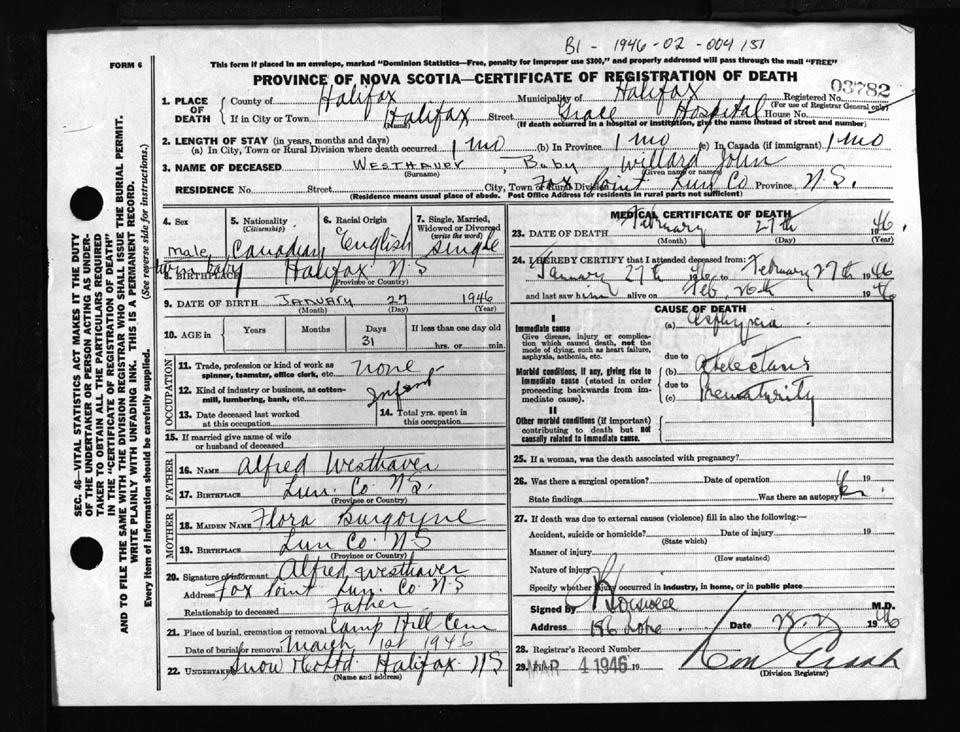 B1 - 1946-02-004151
FORM 6
This form if placed in an envelope, marked "Dominion Statistics—Free, penalty for improper use $300," and properly addressed will pass through the mail "FREE"
PROVINCE OF NOVA SCOTIA—CERTIFICATE OF REGISTRATION OF DEATH
03782
1. PLACE OF DEATH
County of Halifax Municipality of Halifax Registered No.
(For use of Registrar General only)
If in City or Town Halifax Street Grace Hospital House No.
(Name) (If death occurred in a hospital or institution, give the name instead of street and number)
2. LENGTH OF STAY (in years, months and days)
(a) In City, Town or Rural Division where death occurred 1 mo (b) In Province 1 mo (c) In Canada (if immigrant) 1 mo
3. NAME OF DECEASED WESTHAVER, Baby Willard John
(Surname) (Given name or names)
RESIDENCE No. Street City, Town or Rural Division Fox Point Lun Co Province N.S.
(Residence means usual place of abode. Post Office Address for residents in rural parts not sufficient)
4. Sex
Male
5. Nationality
(Citizenship)
Canadian
6. Racial Origin
English
7. Single, Married, Widowed or Divorced
(write the word)
single
8. Halifax N.S
(Province or Country)
9. DATE OF BIRTH JANUARY 27 1946
(Month) (Day) (Year)
10. AGE in Years Months Days If less than one day old
31 hrs. or min.
OCCUPATION
11. Trade, profession or kind of work as spinner, teamster, office clerk, etc. none
12. Kind of industry or business, as cotton-mill, lumbering, bank, etc. Infant
13. Date deceased last worked at this occupation
14. Total yrs. spent in this occupation
15. If married give name of wife or husband of deceased
FATHER
16. NAME Alfred Westhaver
17. BIRTHPLACE Lun. Co N.S.
(Province or Country)
MOTHER
18. MAIDEN NAME Flora Burgoyne
19. BIRTHPLACE Lun Co. N.S
(Province or Country)
20. Signature of informant Alfred Westhaver
Address Fox Point Lun. Co N.S
Relationship to deceased Father
21. Place of burial, cremation or removal Camp Hill Cem
Date of burial or removal March 1st 1946
22. UNDERTAKER Snow & Co Ltd Halifax N.S
(Name and address)
MEDICAL CERTIFICATE OF DEATH
23. DATE OF DEATH February 27th 1946
(Month) (Day) (Year)
24. I HEREBY CERTIFY that I attended deceased from:
January 27th 1946 to February 27th 1946
and last saw him alive on Feb. 26th 1946
CAUSE OF DEATH
I
Immediate cause
Give disease, injury or complication which caused death, not the mode of dying, such as heart failure, asphyxia, asthenia, etc.
(a) Asphyxia
due to
Morbid conditions, if any, giving rise to immediate cause (stated in order proceeding backwards from immediate cause).
(b) Atelectasis
due to
(c) Prematurity
II
Other morbid conditions (if important) contributing to death but not causally related to immediate cause.
25. If a woman, was the death associated with pregnancy?
26. Was there a surgical operation? Date of operation 19
State findings Was there an autopsy?
27. If death was due to external causes (violence) fill in also the following:—
Accident, suicide or homicide? Date of injury 19
(State which)
Manner of injury
(How sustained)
Nature of injury
Specify whether injury occurred in industry, in home, or in public place
Signed by M.D.
Address 186 Date 28.2 1946
28. Registrar's Record Number
29. MAR 4 1946 19
(Division Registrar)
SEC. 46—VITAL STATISTICS ACT MAKES IT THE DUTY OF THE UNDERTAKER OR PERSON ACTING AS UNDERTAKER TO OBTAIN ALL THE PARTICULARS REQUIRED IN THE "CERTIFICATE OF REGISTRATION OF DEATH" AND TO FILE THE SAME WITH THE DIVISION REGISTRAR WHO SHALL ISSUE THE BURIAL PERMIT.
WRITE PLAINLY WITH UNFADING INK. THIS IS A PERMANENT RECORD.
Every item of Information should be carefully supplied. (See reverse side for instructions.)